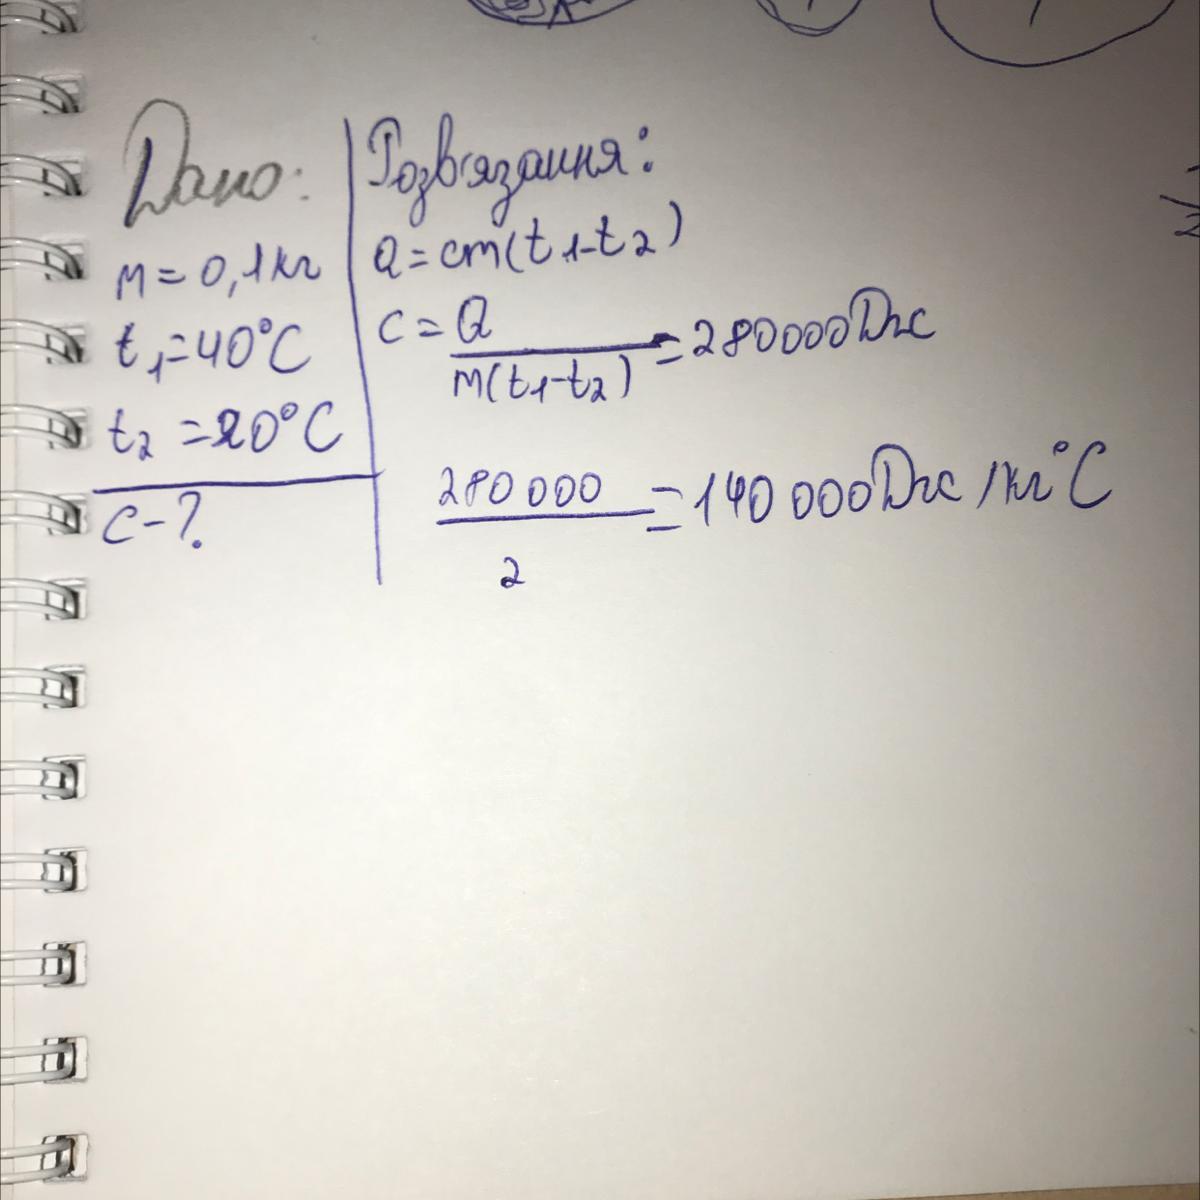 Дано:
m = 0,1 кг
t1 = 40°C
t2 = 20°C
c - ?
Розв'язання:
Q = cm(t1 - t2)
c = Q / m(t1 - t2) = 280000 Дж
280 000 / 2 = 140 000 Дж /кг°C